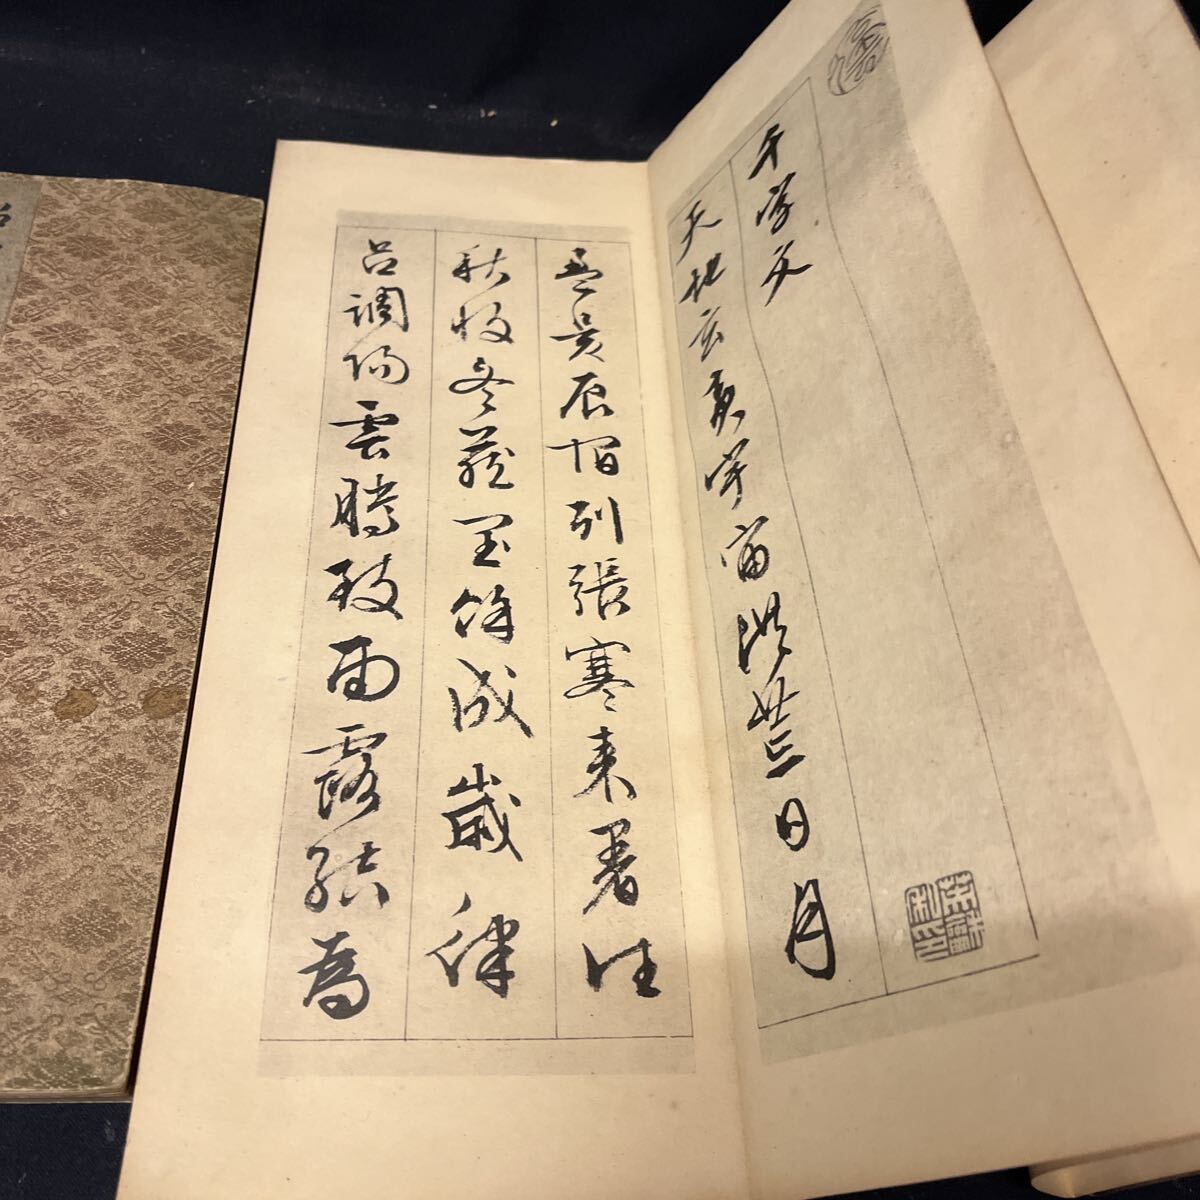 千字文
天地玄黃宇宙洪荒日月
盈昃辰宿列張寒來暑往
秋收冬藏閏餘成歲律
呂調陽雲騰致雨露結為